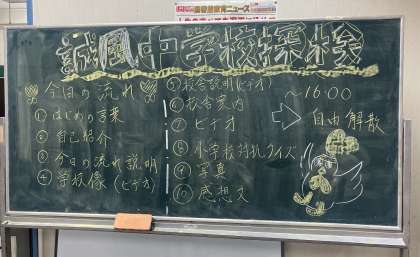 誠風中学校探検
今日の流れ
① はじめの言葉
② 自己紹介
③ 今日の流れ説明
④ 学校像(ビデオ)
⑤ 校舎説明(ビデオ)
⑥ 校舎案内
⑦ ビデオ
⑧ 小学校対抗クイズ
⑨ 写真
⑩ 感想文
〜16:00
⇨ 自由解散